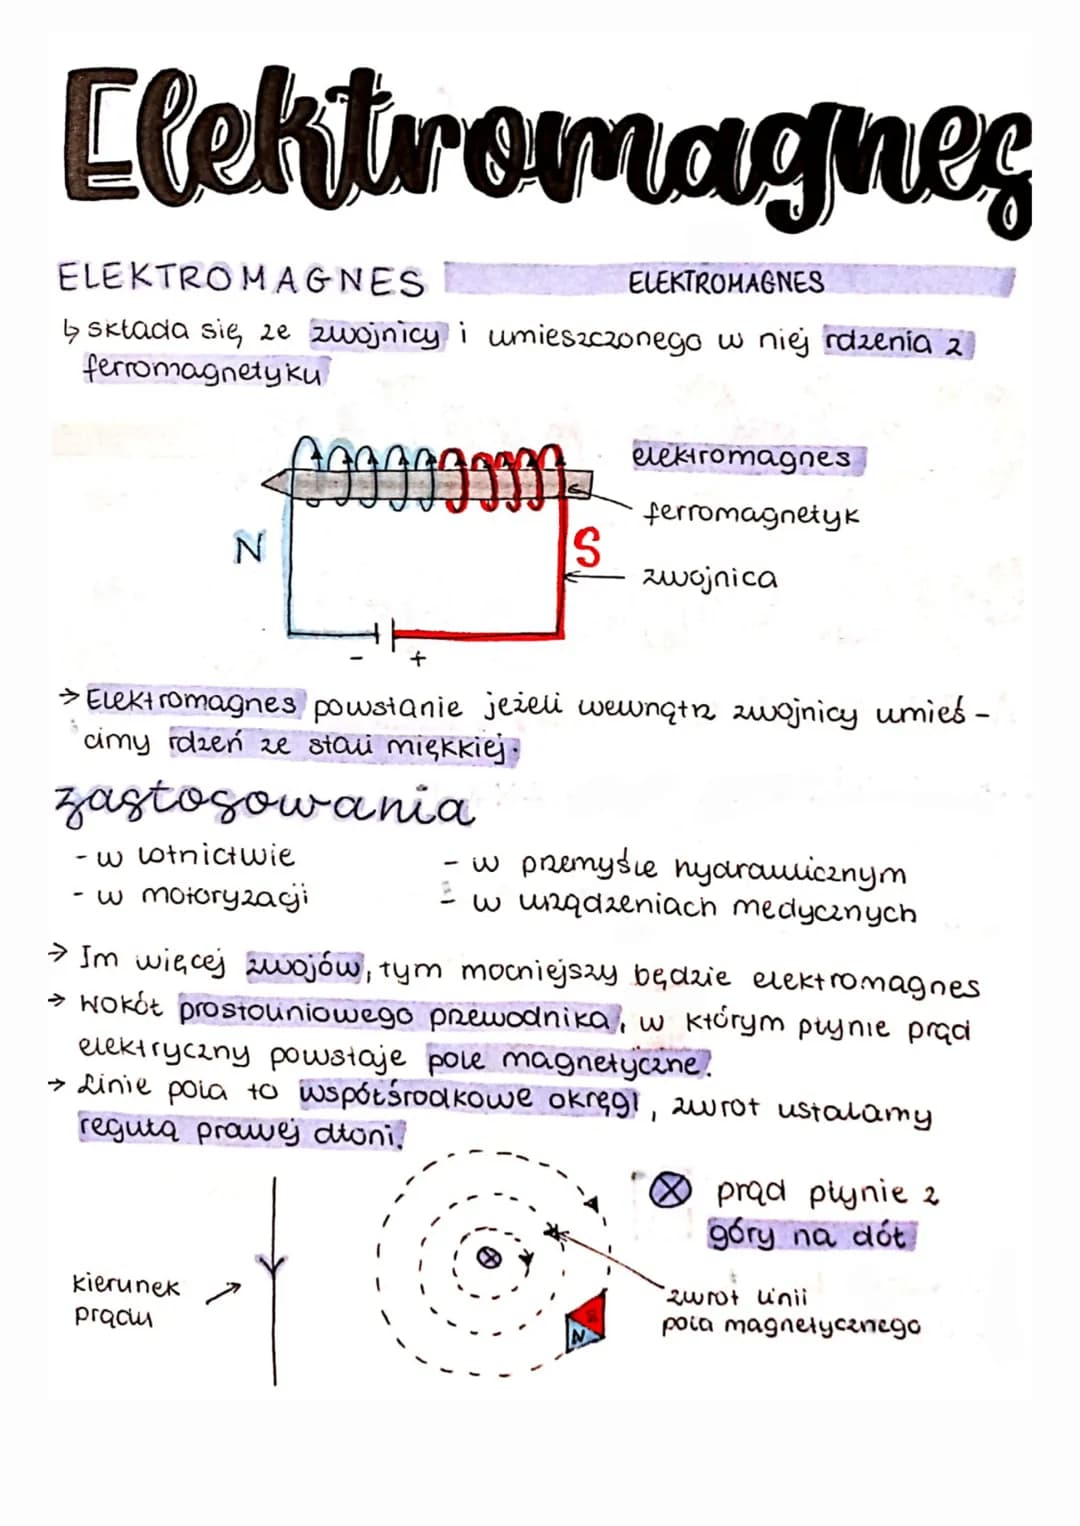 Elektromagnes
ELEKTROMAGNES
ELEKTROMAGNES
↳ składa się ze zwojnicy i umieszczonego w niej rdzenia z
ferromagnetyku
elektromagnes
ferromagnetyk
N
S
zwojnica
- +
→ Elektromagnes powstanie jeżeli wewnątrz zwojnicy umieś-
cimy rdzeń ze stali miękkiej.
zastosowania
- w lotnictwie
- w motoryzacji
- w przemyśle hydraulicznym
- w urządzeniach medycznych
→ Im więcej zwojów, tym mocniejszy będzie elektromagnes
→ Wokół prostoliniowego przewodnika, w którym płynie prąd
elektryczny powstaje pole magnetyczne.
→ Linie pola to współśrodkowe okręgi, zwrot ustalamy
regułą prawej dłoni.
kierunek
prądu
S
N
⊗ prąd płynie z
góry na dół
zwrot linii
pola magnetycznego